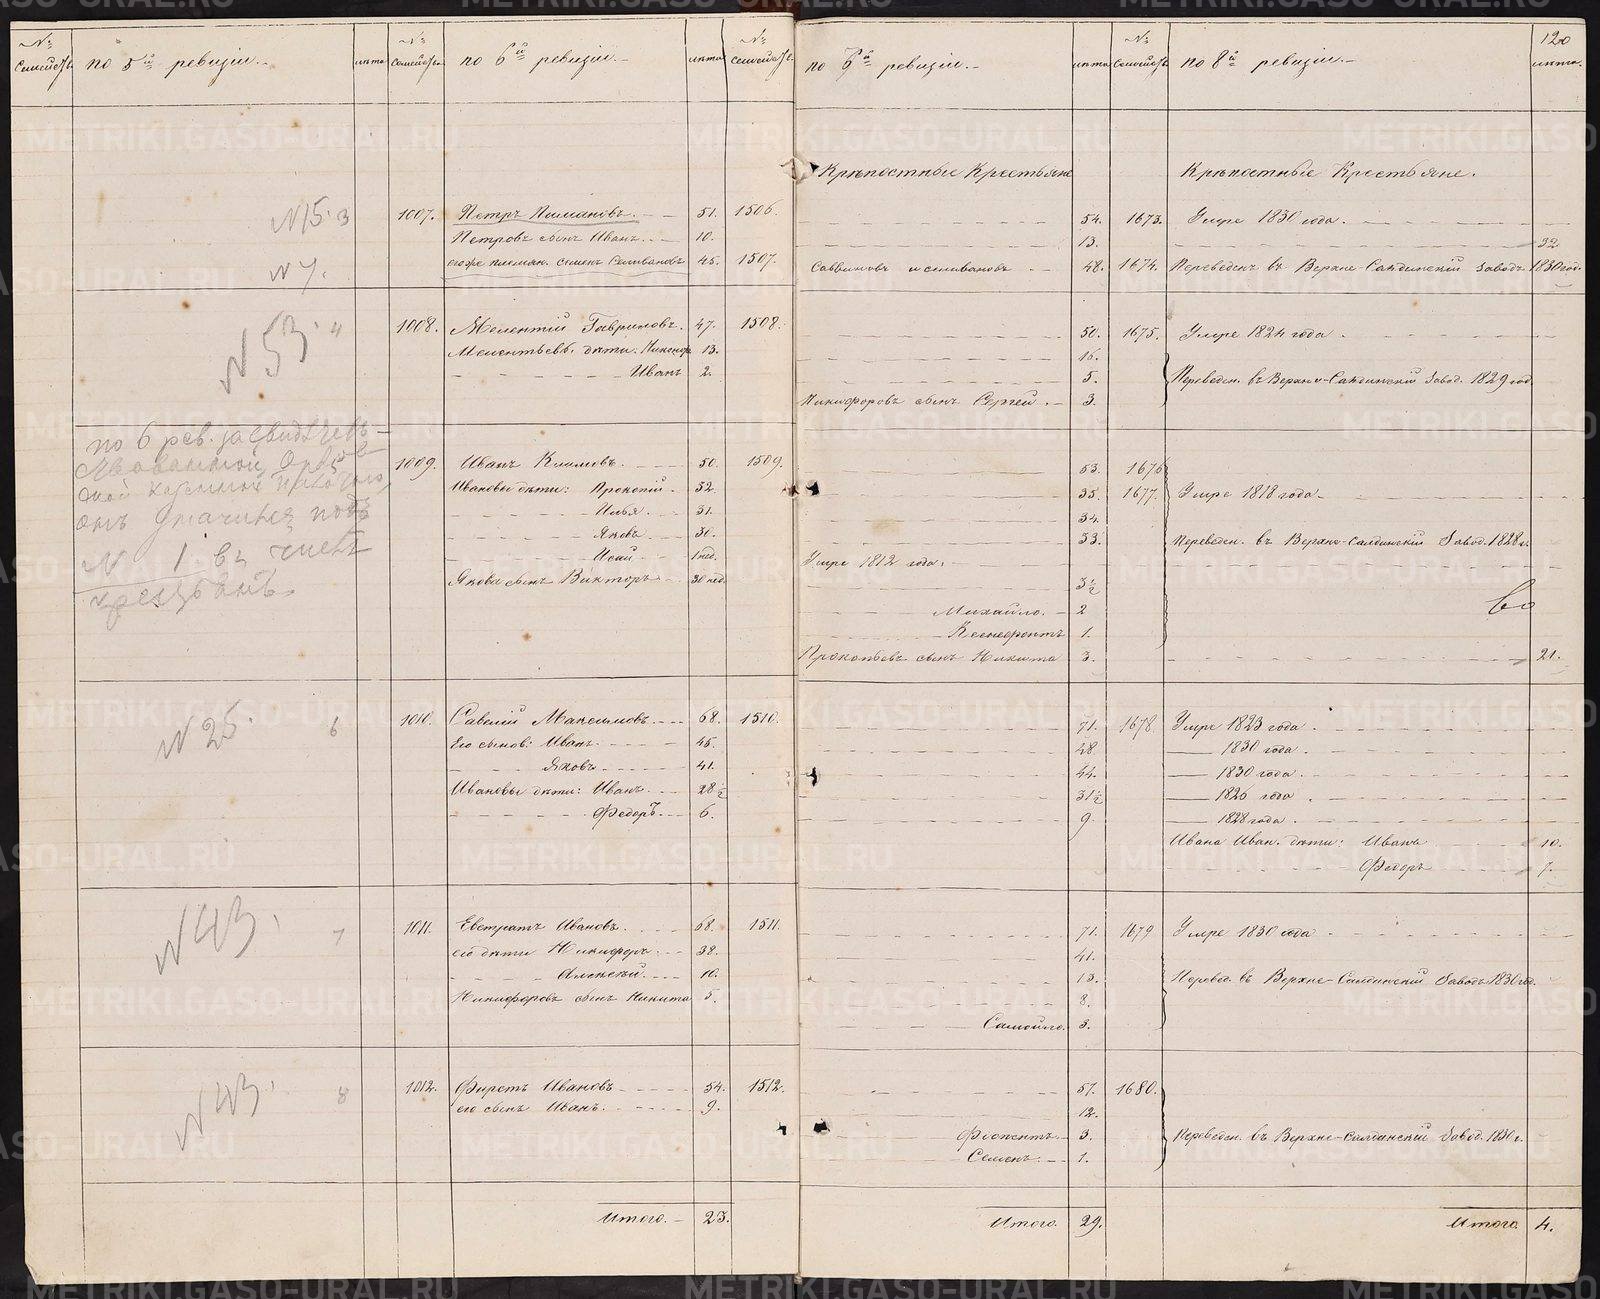 № Семейств. по 5й ревизіи. лѣта № Семейств. по 6й ревизіи. лѣта № Семейств.
1007. Петръ Пимановъ. 51. 1506.
№15. 3
Петровъ сынъ Иванъ. 10.
№7. Семенъ Селивановъ 45. 1507.
№53. 4 1008. Мелентій Гавриловъ. 47. 1508.
Мелентьевы дѣти: 13.
Иванъ 2.
по 6 рев.
1009. Иванъ Климовъ. 50. 1509.
Ивановы дѣти: Прокопій. 32.
Илья. 31.
Яковъ. 30.
1 нед.
Якова сынъ Викторъ 30 нед.
№ 1 въ
№25. 6 1010. Савелій Максимовъ. 68. 1510.
Его сынов: Иванъ. 45.
Яковъ. 41.
Ивановы дѣти: Иванъ. 28½
Федоръ. 6.
№43. 7 1011. Евстратъ Ивановъ. 68. 1511.
его дѣти Никифоръ. 38.
Алексѣй. 10.
Никифоровъ сынъ Никита 5.
№43. 8 1012. Фирстъ Ивановъ 54. 1512.
его сынъ Иванъ. 9.
Итого. 23.
120
по 7й ревизіи. лѣта № Семейств. по 8й ревизіи. лѣта.
Крѣпостные Крестьяне Крѣпостные Крестьяне.
54. 1673. Умре 1830 года.
13. 32
Саввиновъ и селивановъ 48. 1674. Переведенъ въ Верхне-Салдинскій Заводъ 1830 год.
50. 1675. Умре 1824 года
16.
5. Переведен. въ Верхне-Салдинскій Завод. 1829 год
Никифоровъ сынъ Сергей. 3.
53. 1676
35. 1677. Умре 1818 года
34.
33. Переведен. въ Верхне-Салдинскій Завод. 1828 г.
Умре 1812 года.
3½
Михайло. 2
Ксенофонтъ 1.
Прокопьевъ сынъ Никита 3. 21.
71. 1678. Умре 1823 года.
48 1830 года.
44. 1830 года.
31½ 1826 года.
9. 1828 года.
Ивана Иван. дѣти: Иванъ 10.
Федоръ 7.
71. 1679 Умре 1830 года
41.
13. Перевед. въ Верхне-Салдинскій Заводъ 1830 год.
8.
Самойло. 3.
57. 1680.
12.
3. Переведен. въ Верхне-Салдинскій Завод. 1830 г.
Семенъ. 1.
Итого. 29. Итого 4.
METRIKI.GASO-URAL.RU